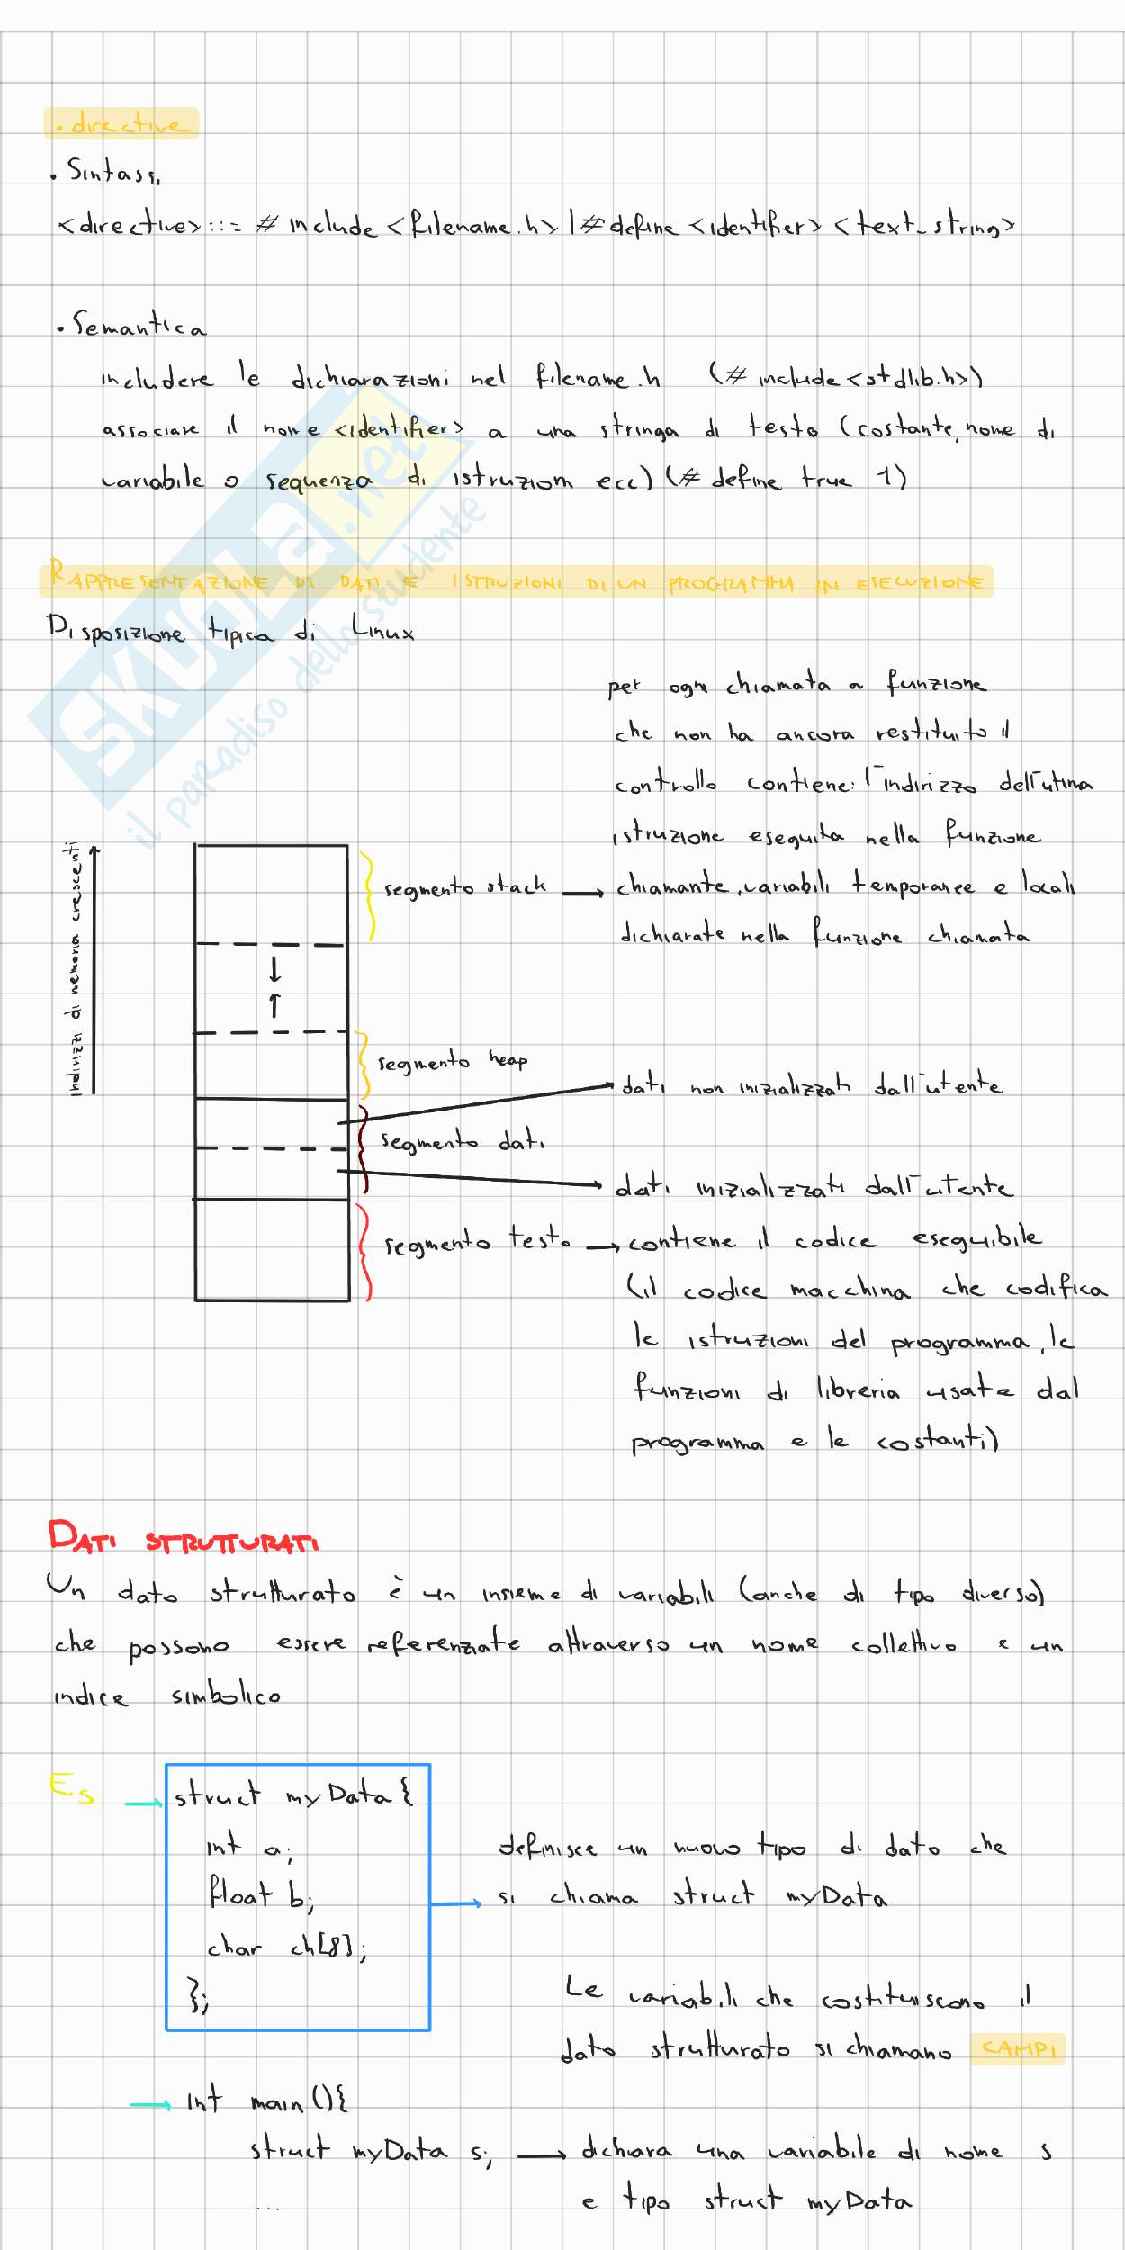 • directive
• Sintassi
<directive>::= # include <filename.h> | # define <identifier> <text_string>
• Semantica
includere le dichiarazioni nel filename.h (# include <stdlib.h>)
associare il nome <identifier> a una stringa di testo (costante, nome di
variabile o sequenza di istruzioni ecc) (# define true 1)
RAPPRESENTAZIONE DI DATI E ISTRUZIONI DI UN PROGRAMMA IN ESECUZIONE
Disposizione tipica di Linux
SKUOLA.net
il paradiso dello studente
per ogni chiamata a funzione
che non ha ancora restituito il
controllo contiene: l'indirizzo dell'utima
istruzione eseguita nella funzione
chiamante, variabili temporanee e locali
dichiarate nella funzione chiamata
Indirizzi di memoria crescenti
segmento stack
segmento heap
dati non inizializzati dall'utente
segmento dati
dati inizializzati dall'utente
segmento testo → contiene il codice eseguibile
(il codice macchina che codifica
le istruzioni del programma, le
funzioni di libreria usate dal
programma e le costanti)
DATI STRUTTURATI
Un dato strutturato è un insieme di variabili (anche di tipo diverso)
che possono essere referenziate attraverso un nome collettivo e un
indice simbolico
Es → struct myData {
int a;
float b;
char ch[8];
};
definisce un nuovo tipo di dato che
si chiama struct myData
Le variabili che costituiscono il
dato strutturato si chiamano CAMPI
→ int main () {
struct myData s; → dichiara una variabile di nome s
e tipo struct myData
...